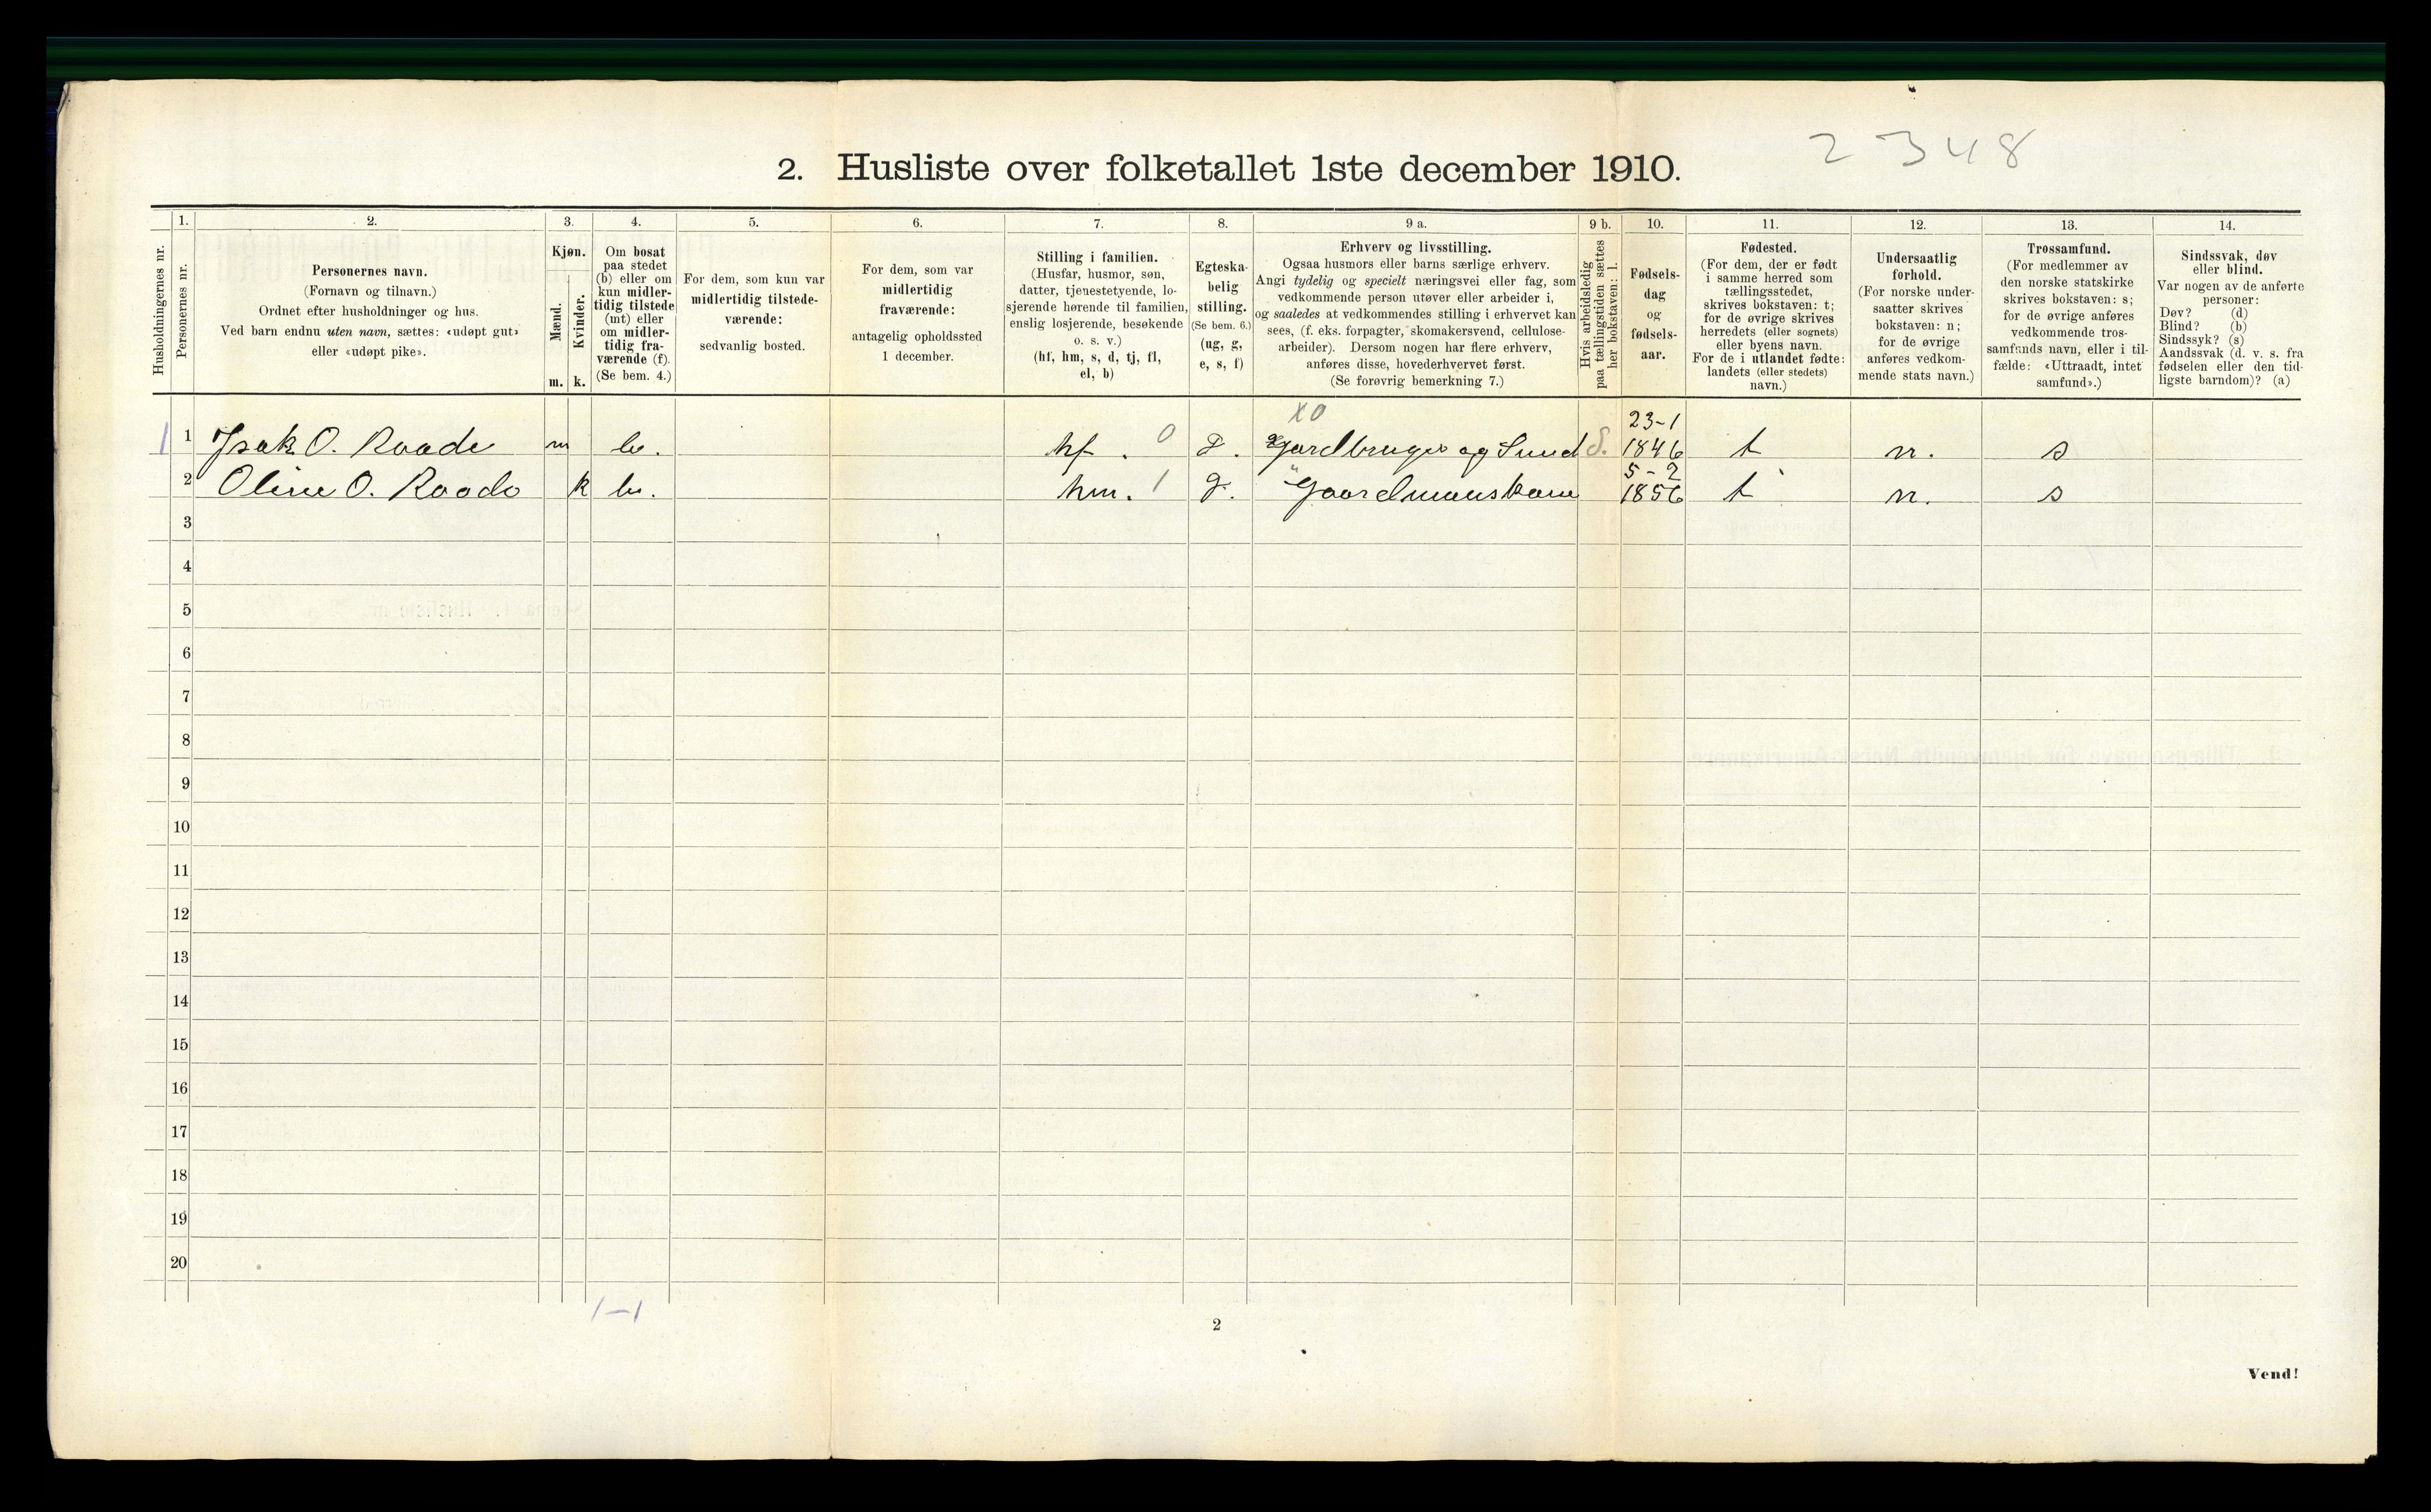 2348
2. Husliste over folketallet 1ste december 1910.
Husholdningernes nr.
1. Personernes nr.
2. Personernes navn.
(Fornavn og tilnavn.)
Ordnet efter husholdninger og hus.
Ved barn endnu uten navn, sættes: «udøpt gut»
eller «udøpt pike».
3. Kjøn.
Mænd. m.
Kvinder. k.
4. Om bosat
paa stedet
(b) eller om
kun midler-
tidig tilstede
(mt) eller
om midler-
tidig fra-
værende (f).
(Se bem. 4.)
5. For dem, som kun var
midlertidig tilstede-
værende:
sedvanlig bosted.
6. For dem, som var
midlertidig
fraværende:
antagelig opholdssted
1 december.
7. Stilling i familien.
(Husfar, husmor, søn,
datter, tjenestetyende, lo-
sjerende hørende til familien,
enslig losjerende, besøkende
o. s. v.)
(hf, hm, s, d, tj, fl,
el, b)
8. Egteska-
belig
stilling.
(Se bem. 6.)
(ug, g,
e, s, f)
9 a. Erhverv og livsstilling.
Ogsaa husmors eller barns særlige erhverv.
Angi tydelig og specielt næringsvei eller fag, som
vedkommende person utøver eller arbeider i,
og saaledes at vedkommendes stilling i erhvervet kan
sees, (f. eks. forpagter, skomakersvend, cellulose-
arbeider). Dersom nogen har flere erhverv,
anføres disse, hovederhvervet først.
(Se forøvrig bemerkning 7.)
9 b. Hvis arbeidsledig
paa tællingstiden sættes
her bokstaven: l.
10. Fødsels-
dag
og
fødsels-
aar.
11. Fødested.
(For dem, der er født
i samme herred som
tællingsstedet,
skrives bokstaven: t;
for de øvrige skrives
herredets (eller sognets)
eller byens navn.
For de i utlandet fødte:
landets (eller stedets)
navn.)
12. Undersaatlig
forhold.
(For norske under-
saatter skrives
bokstaven: n;
for de øvrige
anføres vedkom-
mende stats navn.)
13. Trossamfund.
(For medlemmer av
den norske statskirke
skrives bokstaven: s;
for de øvrige anføres
vedkommende tros-
samfunds navn, eller i til-
fælde: «Uttraadt, intet
samfund».)
14. Sindssvak, døv
eller blind.
Var nogen av de anførte
personer:
Døv? (d)
Blind? (b)
Sindssyk? (s)
Aandssvak (d. v. s. fra
fødselen eller den tid-
ligste barndom)? (a)
X0 23-1
1 1 Isak O. Raade m b. hf. 0 g. Gardbruger og S. 1846 t n. s
5-2
2 Oline O. Raade k b. hm. 1 g. Gaardmanskone 1856 t n. s
3
4
5
6
7
8
9
10
11
12
13
14
15
16
17
18
19
20
1-1
2
Vend!